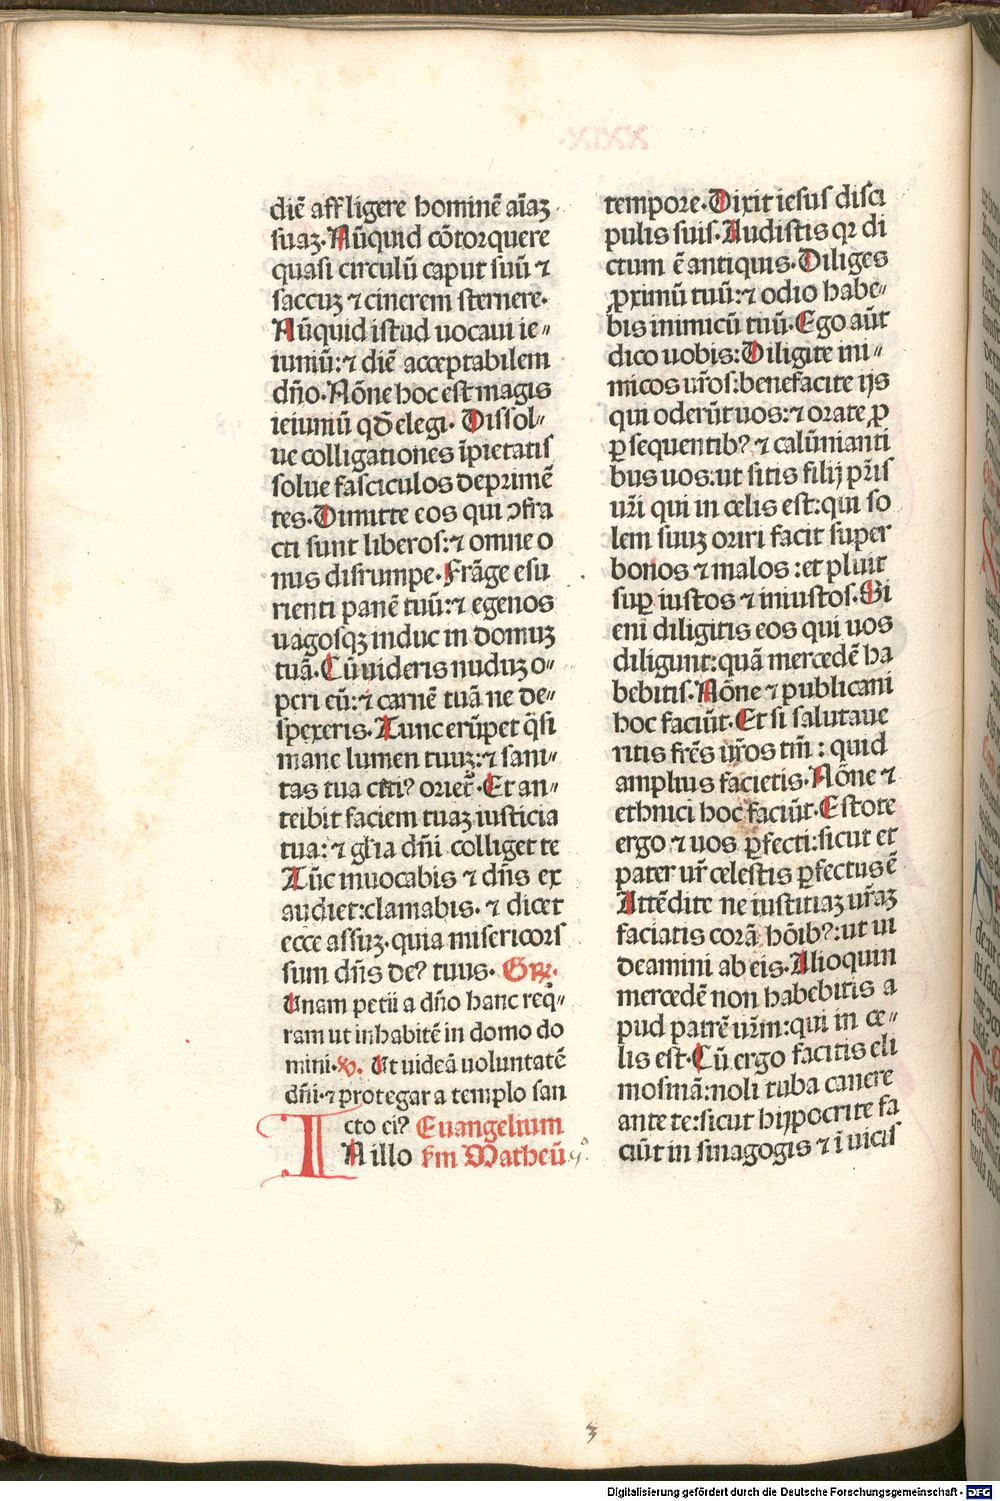 diē affligere hominē aīaꝫ
suaꝫ. Nūquid cōtorquere
quasi circulū caput suū ⁊
saccuꝫ ⁊ cinerem sternere.
Nūquid istud uocaui ie〃
iuniū: ⁊ diē acceptabilem
dn̄o. Nōne hoc est magis
ieiuniū qđ elegi. Dissol〃
ue colligationes īpietatis
solue fasciculos deprimē
tes. Dimitte eos qui ↄfra
cti sunt liberos: ⁊ omne o
nus disrumpe. Frāge esu
rienti panē tuū: ⁊ egenos
uagosqꝫ induc in domuꝫ
tuā. Cū uideris nuduꝫ o〃
peri eū: ⁊ carnē tuā ne de〃
spexeris. Tunc erūpet q̄si
mane lumen tuuꝫ: ⁊ sani〃
tas tua citi? orietꝛ̄. Et an〃
teibit faciem tuaꝫ iusticia
tua: ⁊ gl̄ia dn̄i colliget te
Tūc inuocabis ⁊ dn̄s ex
audiet: clamabis. ⁊ dicet
ecce assuꝫ. quia misericors
sum dn̄s de? tuus. Gꝛ̄.
Unam petii a dn̄o hanc req̄〃
ram ut inhabitē in domo do
mini. ℣. Ut uideā uoluntatē
dn̄i. ⁊ protegar a templo san
cto ei? Euangelium
IN illo ẜm Matheū. 5°.
tempore. Dixit iesus disci
pulis suis. Audistis qꝛ di
ctum ē antiquis. Diliges
ꝓximū tuū: ⁊ odio habe〃
bis inimicū tuū. Ego aūt
dico uobis: Diligite ini〃
micos ur̄os: benefacite ijs
qui oderūt uos: ⁊ orate ꝓ
ꝑsequentib? ⁊ calūnianti
bus uos: ut sitis filij pr̄is
ur̄i qui in celis est: qui so
lem suuꝫ oriri facit super
bonos ⁊ malos: et pluit
suꝑ iustos ⁊ iniustos. Si
eni diligitis eos qui uos
diligunt: quā mercedē ha
bebitis. Nōne ⁊ publicani
hoc faciūt. Et si salutaue
ritis fr̄es ur̄os tm̄: quid
amplius facietis. Nōne ⁊
ethnici hoc faciūt. Estote
ergo ⁊ uos ꝑfecti: sicut et
pater ur̄ celestis ꝑfectus ē
Attēdite ne iustitiaꝫ ur̄aꝫ
faciatis corā hōib?: ut ui
deamini ab eis. Alioquin
mercedē non habebitis a
pud patrē ur̄m: qui in ce〃
lis est. Cū ergo facitis eli
mosinā: noli tuba canere
ante te: sicut hijpocrite fa
ciūt in sinagogis ⁊ ī uicis
3
Digitalisierung gefördert durch die Deutsche Forschungsgemeinschaft - DFG